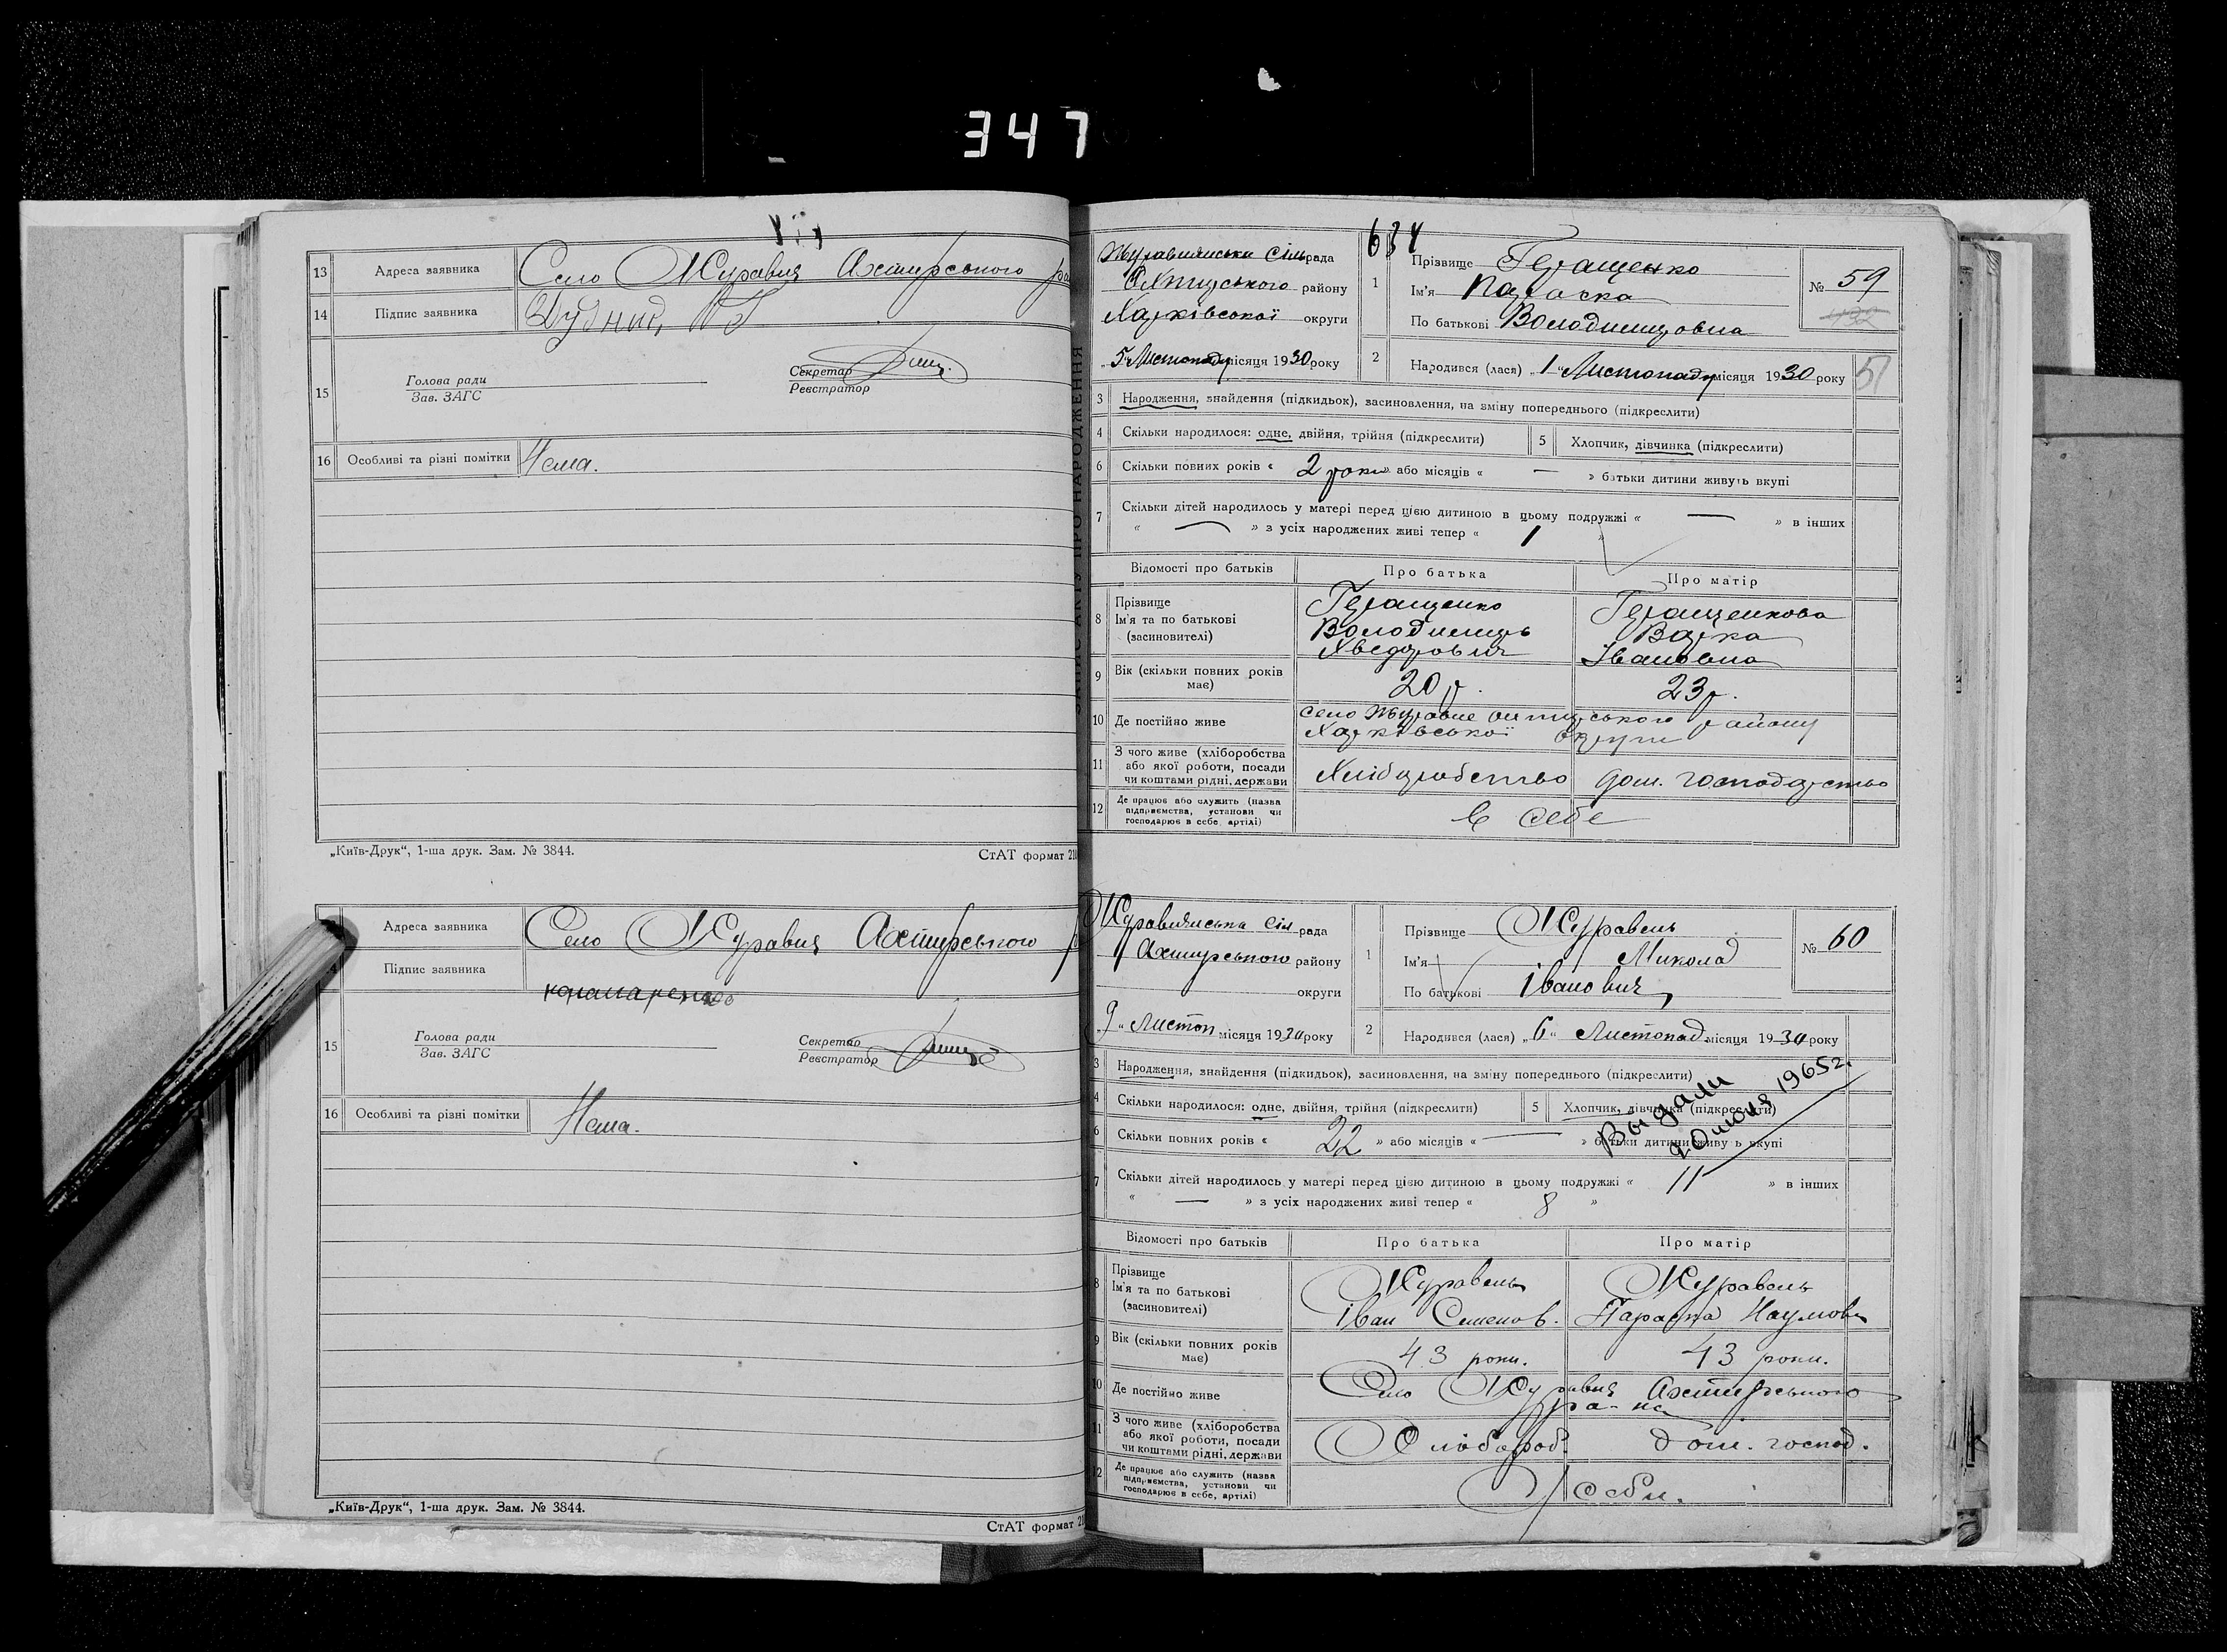 347
13 Адреса заявника Село Журавня Ахтирського
14 Підпис заявника
15 Голова ради
Зав. ЗАГС
Секретар
Реєстратор
16 Особливі та різні помітки Нема.
„Київ-Друк“, 1-ша друк. Зам. № 3844.
СтАТ формат
Адреса заявника Село Журавня Ахтирського
Підпис заявника
15 Голова ради
Зав. ЗАГС
Секретар
Реєстратор
16 Особливі та різні помітки Нема.
„Київ-Друк“, 1-ша друк. Зам. № 3844.
СтАТ формат
634
Журавнянська Сільрада
Охтирського району
Харківської округи
„5“ Листопаду місяця 1930 року
1 Прізвище Геращенко
Ім'я Параска
По батькові Володимировна
№ 59
432
2 Народився (лася) „1“ Листопаду місяця 1930 року
51
3 Народження, знайдення (підкидьок), засиновлення, на зміну попереднього (підкреслити)
4 Скільки народилося: одне, двійня, трійня (підкреслити) 5 Хлопчик, дівчинка (підкреслити)
6 Скільки повних років « 2 роки » або місяців « — » батьки дитини живуть вкупі
7 Скільки дітей народилось у матері перед цією дитиною в цьому подружжі « — » в інших
« — » з усіх народжених живі тепер « 1 »
Відомості про батьків Про батька Про матір
8 Прізвище
Ім'я та по батькові
(засиновителі)
Геращенко
Володимирь
Хведорович
Геращенкова
Варка
Івановна
9 Вік (скільки повних років має) 20 р. 23 р.
10 Де постійно живе село Журавне Охтирського району
Харківської округи
11 З чого живе (хліборобства
або якої роботи, посади
чи коштами рідні, держави
Хліборобство дом. господарство
12 Де працює або служить (назва
підприємства, установи чи
господарює в себе, артілі)
в себе
Журавнянська Сілрада
Ахтирського району
округи
„9“ Листоп місяця 1930 року
1 Прізвище Журавель
Ім'я Микола
По батькові Іванович
№ 60
2 Народився (лася) „6“ Листопад місяця 1930 року
3 Народження, знайдення (підкидьок), засиновлення, на зміну попереднього (підкреслити)
4 Скільки народилося: одне, двійня, трійня (підкреслити) 5 Хлопчик, дівчинка (підкреслити)
Выдали
1965 г.
6 Скільки повних років « 22 » або місяців « — » батьки дитини живуть вкупі
7 Скільки дітей народилось у матері перед цією дитиною в цьому подружжі « 11 » в інших
« — » з усіх народжених живі тепер « 8 »
Відомості про батьків Про батька Про матір
8 Прізвище
Ім'я та по батькові
(засиновителі)
Журавель
Іван Семенов.
Журавель
Параска Наумовн
9 Вік (скільки повних років має) 43 роки. 43 роки.
10 Де постійно живе Село Журавня Ахтирського
ра-на
11 З чого живе (хліборобства
або якої роботи, посади
чи коштами рідні, держави
Хлібороб. дом. господ.
12 Де працює або служить (назва
підприємства, установи чи
господарює в себе, артілі)
У себи.